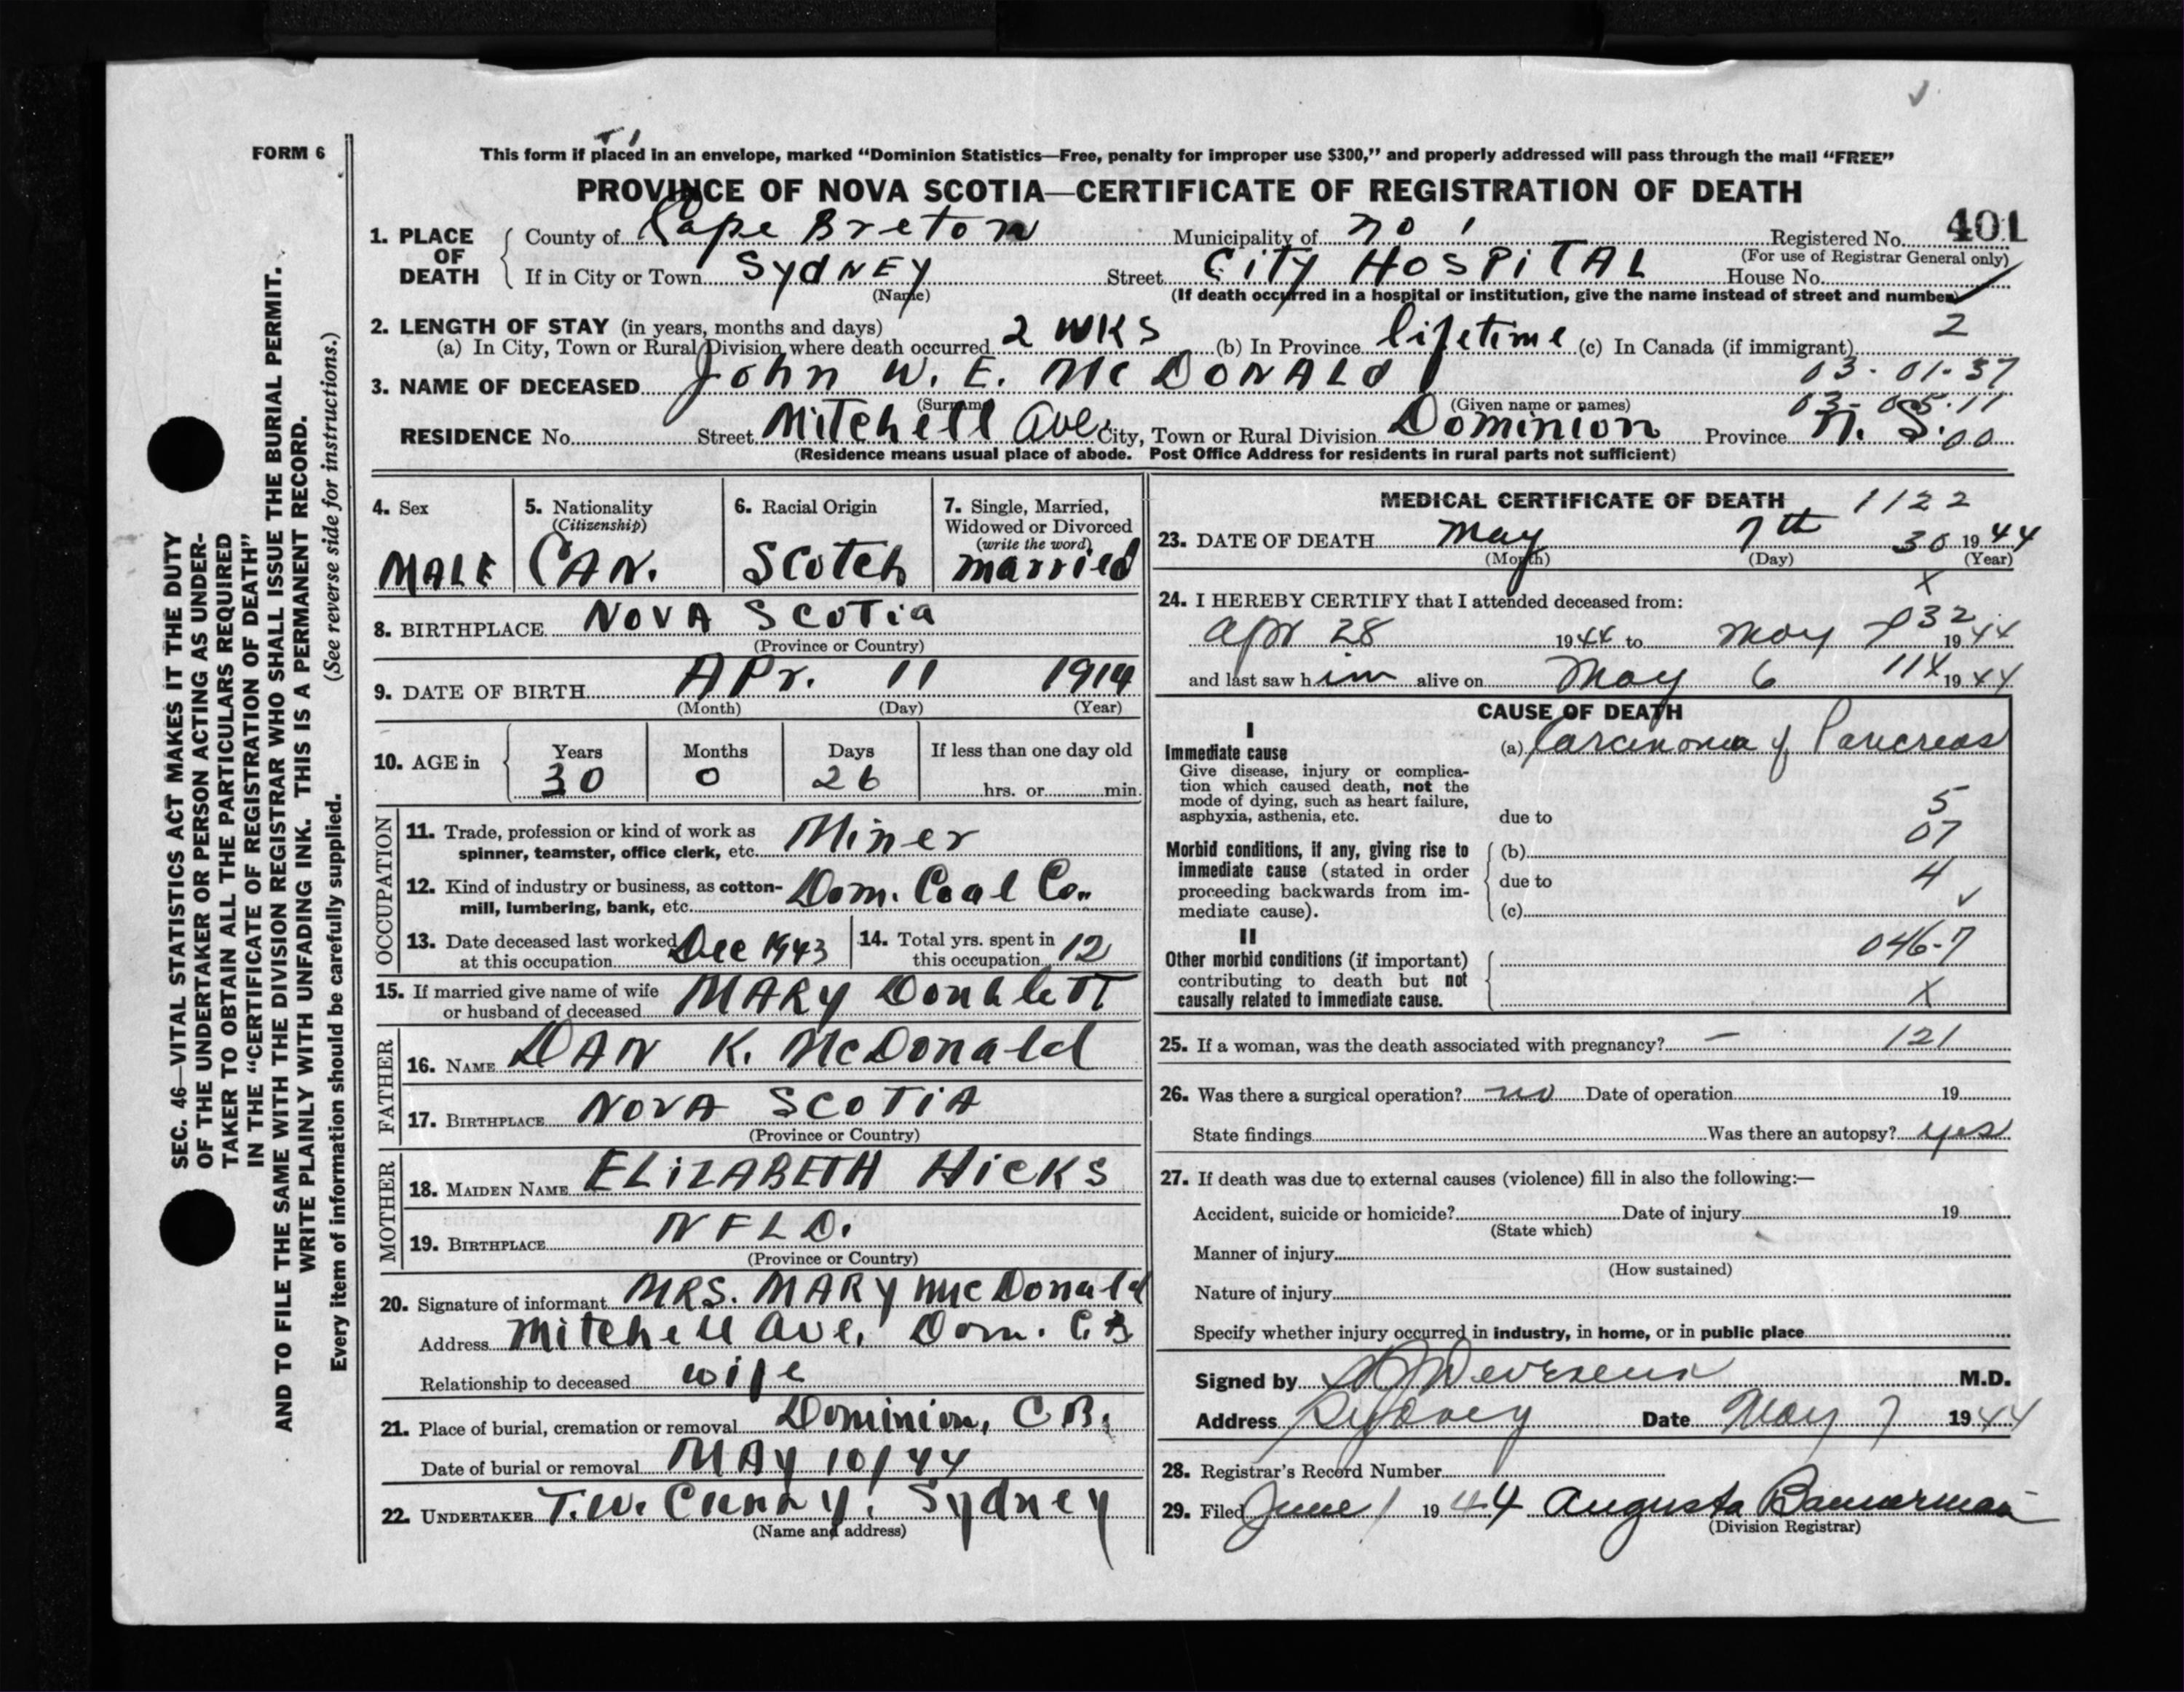 FORM 6
This form if placed in an envelope, marked “Dominion Statistics—Free, penalty for improper use $300,” and properly addressed will pass through the mail “FREE”
PROVINCE OF NOVA SCOTIA—CERTIFICATE OF REGISTRATION OF DEATH
401
1. PLACE OF DEATH County of Cape Breton Municipality of No 1 Registered No.
(For use of Registrar General only)
If in City or Town SYDNEY Street CITY HOSPITAL House No.
(Name) (If death occurred in a hospital or institution, give the name instead of street and number)
2. LENGTH OF STAY (in years, months and days) 2
(a) In City, Town or Rural Division where death occurred 2 WKS (b) In Province lifetime (c) In Canada (if immigrant)
3. NAME OF DECEASED John W. E. McDONALD 03-01-37
(Surname) (Given name or names) 03-05-11
RESIDENCE No. Street Mitchell Ave. City, Town or Rural Division Dominion Province N. S. 00
(Residence means usual place of abode. Post Office Address for residents in rural parts not sufficient)
4. Sex
MALE
5. Nationality
(Citizenship)
CAN.
6. Racial Origin
Scotch
7. Single, Married,
Widowed or Divorced
(write the word)
married
8. BIRTHPLACE NOVA SCOTia
(Province or Country)
9. DATE OF BIRTH APr. 11 1914
(Month) (Day) (Year)
10. AGE in Years Months Days If less than one day old
30 0 26 hrs. or min.
OCCUPATION
11. Trade, profession or kind of work as
spinner, teamster, office clerk, etc. Miner
12. Kind of industry or business, as cotton-
mill, lumbering, bank, etc. Dom. Coal Co.
13. Date deceased last worked
at this occupation Dec 1943
14. Total yrs. spent in
this occupation 12
15. If married give name of wife
or husband of deceased MARY
FATHER
16. NAME DAN K. McDonald
17. BIRTHPLACE NOVA SCOTIA
(Province or Country)
MOTHER
18. MAIDEN NAME ELIZABETH HICKS
19. BIRTHPLACE NFLD.
(Province or Country)
20. Signature of informant MRS. MARY McDonald
Address Mitchell Ave. Dom. C.B
Relationship to deceased wife
21. Place of burial, cremation or removal Dominion, C B.
Date of burial or removal MAY 10/44
22. UNDERTAKER T.W. Curry, Sydney
(Name and address)
MEDICAL CERTIFICATE OF DEATH 1122
23. DATE OF DEATH May 7th 30 1944
(Month) (Day) (Year)
X
24. I HEREBY CERTIFY that I attended deceased from:
032
Apr 28 1944 to May 7 1944
and last saw him alive on May 6 11X 1944
CAUSE OF DEATH
I
Immediate cause (a) Carcinoma of Pancreas
Give disease, injury or complica-
tion which caused death, not the
mode of dying, such as heart failure,
asphyxia, asthenia, etc. due to
5
07
Morbid conditions, if any, giving rise to (b)
immediate cause (stated in order due to 4
proceeding backwards from im-
mediate cause). (c)
II
Other morbid conditions (if important) 046-7
contributing to death but not
causally related to immediate cause. X
25. If a woman, was the death associated with pregnancy? — 121
26. Was there a surgical operation? no Date of operation 19
State findings Was there an autopsy? yes
27. If death was due to external causes (violence) fill in also the following:—
Accident, suicide or homicide? Date of injury 19
(State which)
Manner of injury
(How sustained)
Nature of injury
Specify whether injury occurred in industry, in home, or in public place
Signed by M.D.
Address Sydney Date May 7 1944
28. Registrar’s Record Number
29. Filed June 1 1944 Augusta Bannerman
(Division Registrar)
SEC. 46—VITAL STATISTICS ACT MAKES IT THE DUTY
OF THE UNDERTAKER OR PERSON ACTING AS UNDER-
TAKER TO OBTAIN ALL THE PARTICULARS REQUIRED
IN THE “CERTIFICATE OF REGISTRATION OF DEATH”
AND TO FILE THE SAME WITH THE DIVISION REGISTRAR WHO SHALL ISSUE THE BURIAL PERMIT.
WRITE PLAINLY WITH UNFADING INK. THIS IS A PERMANENT RECORD.
Every item of information should be carefully supplied. (See reverse side for instructions.)